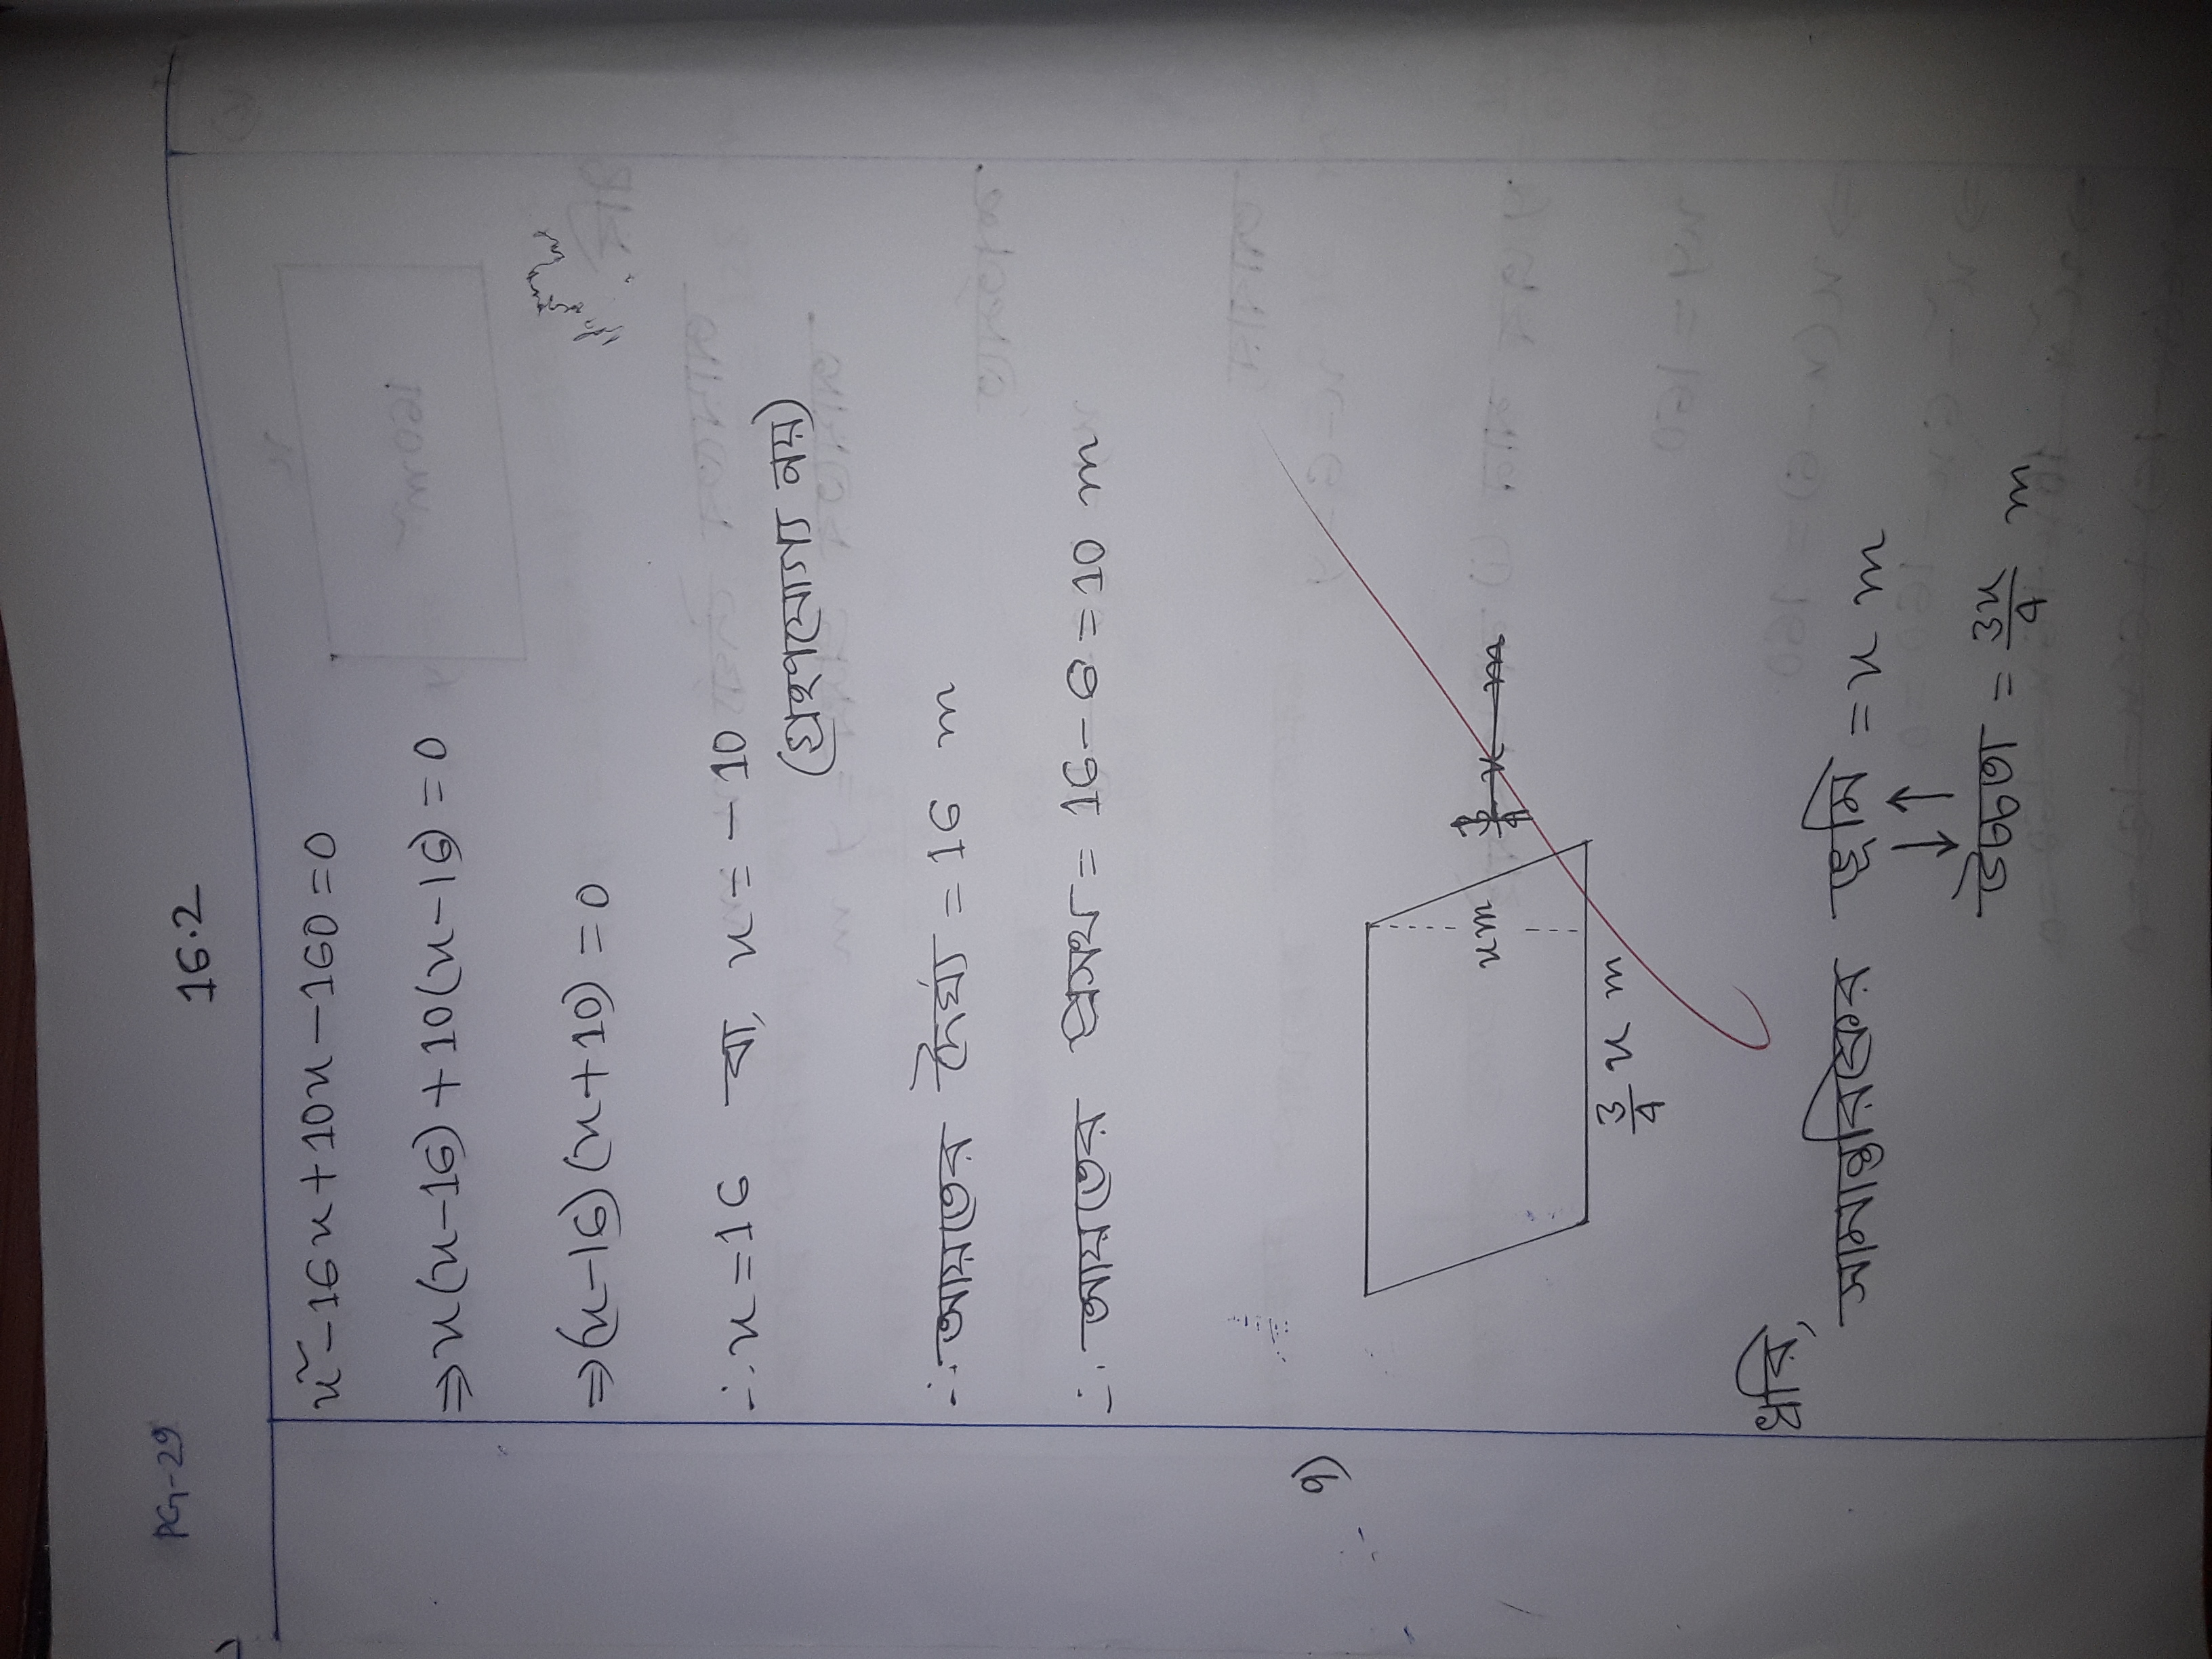 PG-29
16.2
x² - 16x + 10x - 160 = 0
⇒ x(x-16) + 10(x-16) = 0
⇒ (x-16) (x+10) = 0
∴ x = 16 বা, x = - 10
(গ্রহণযোগ্য নয়)
∴ আয়তের দৈর্ঘ্য = 16 m
∴ আয়তের প্রসথ = 16 - 6 = 10 m
৭)
x m
3/4 x m
3/4 x m
ধরি,
সামান্তরিকের ভূমি = x m
↓↑
উচ্চতা = 3x/4 m